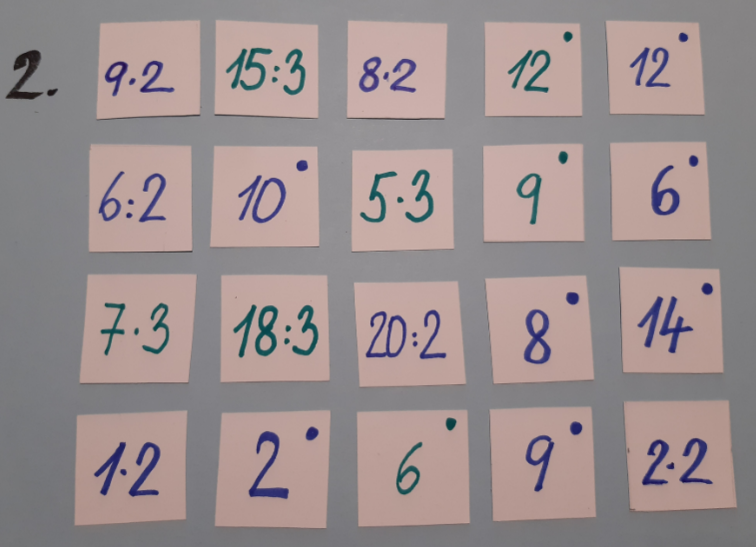 2. 9·2 15:3 8·2 12 12
6:2 10 5·3 9 6
7·3 18:3 20:2 8 14
1·2 2 6 9 2·2